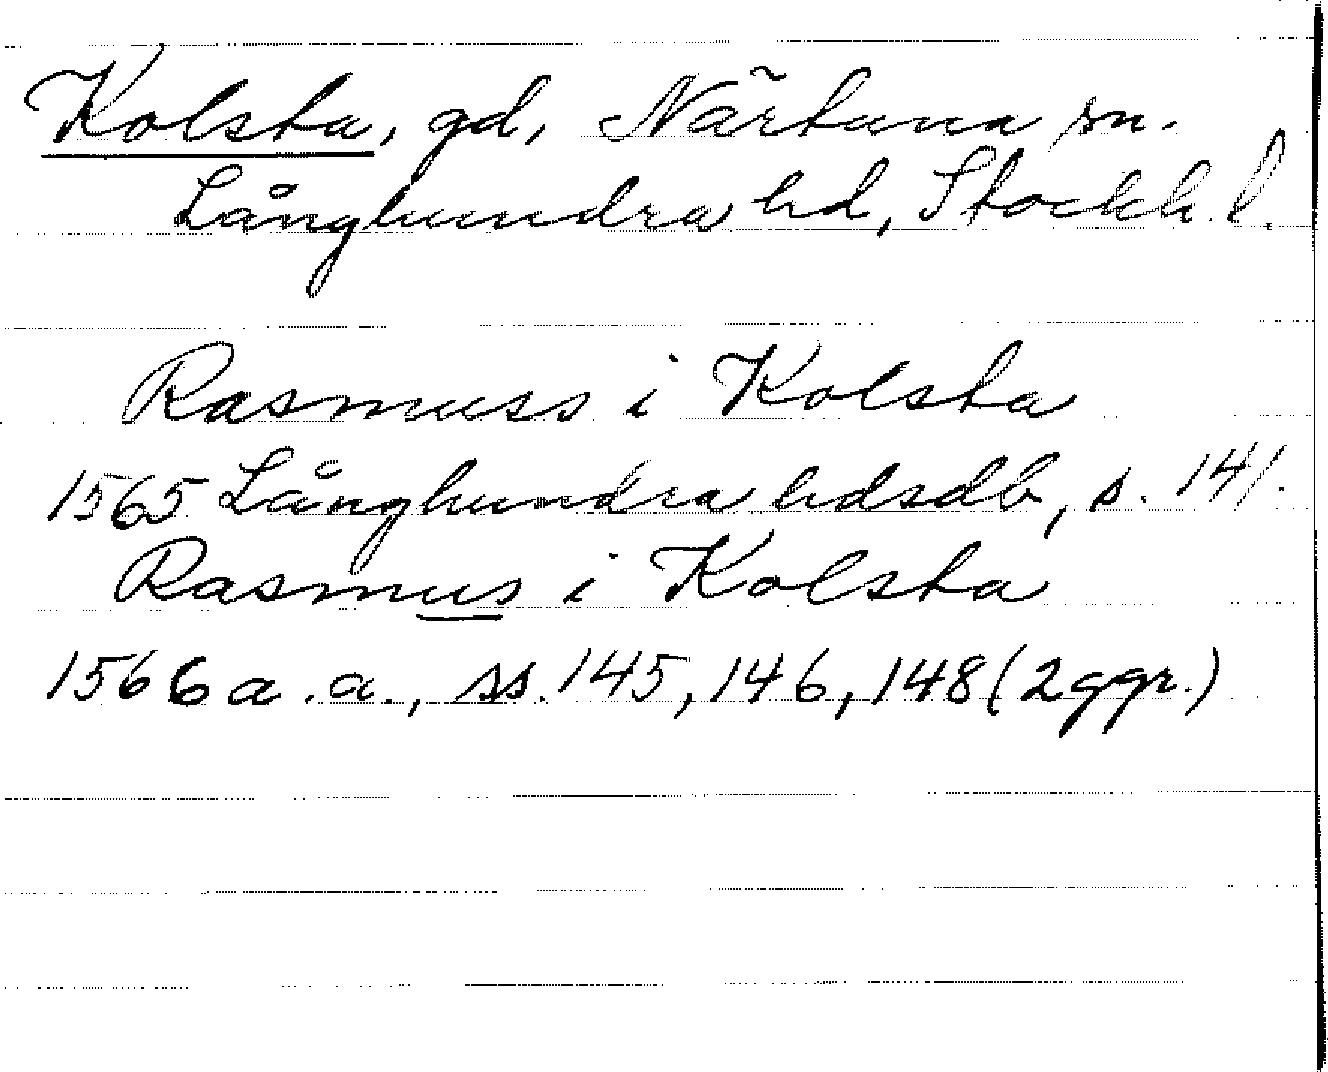 Kolsta, gd, Närtuna sn.
Långhundra hd, Stockh. l.
Rasmuss i Kolsta
1565 Långhundra hdsdb, s. 141.
Rasmus i Kolsta
1566 a. a., ss. 145, 146, 148 (2 ggr.)